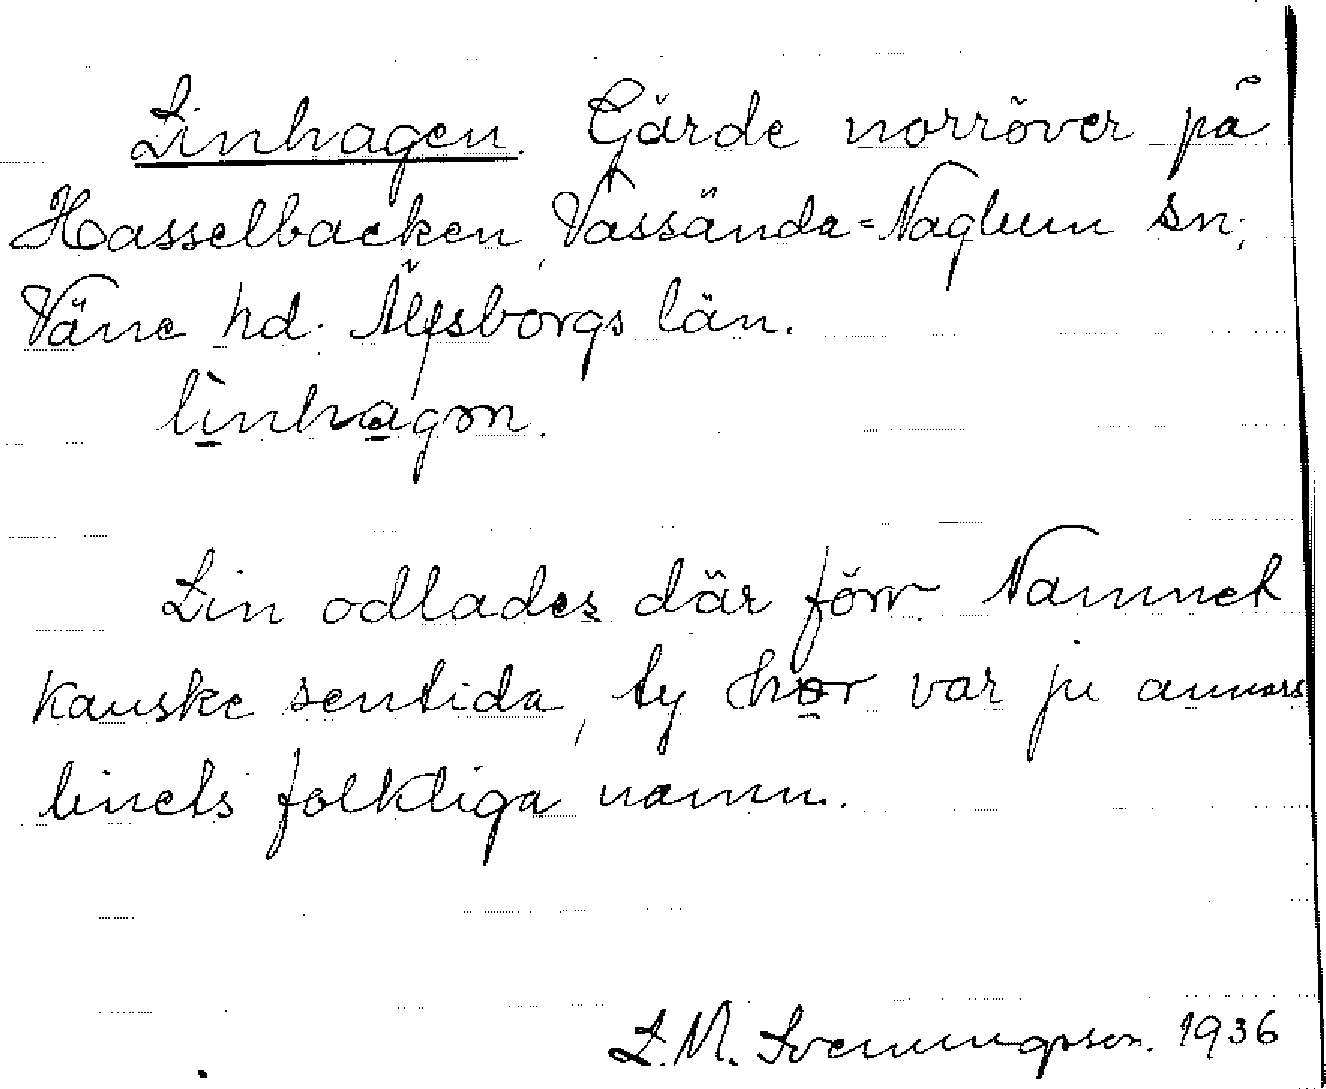 Linhagen. Gärde norröver på
Hasselbacken, Vassända-Naglum sn;
Väne hd. Älfsborgs län.
lìnhagon.
Lin odlades där förr. Namnet
kanske sentida, ty hor var ju annars
linets folkliga namn.
L. M. Svenungsson. 1936